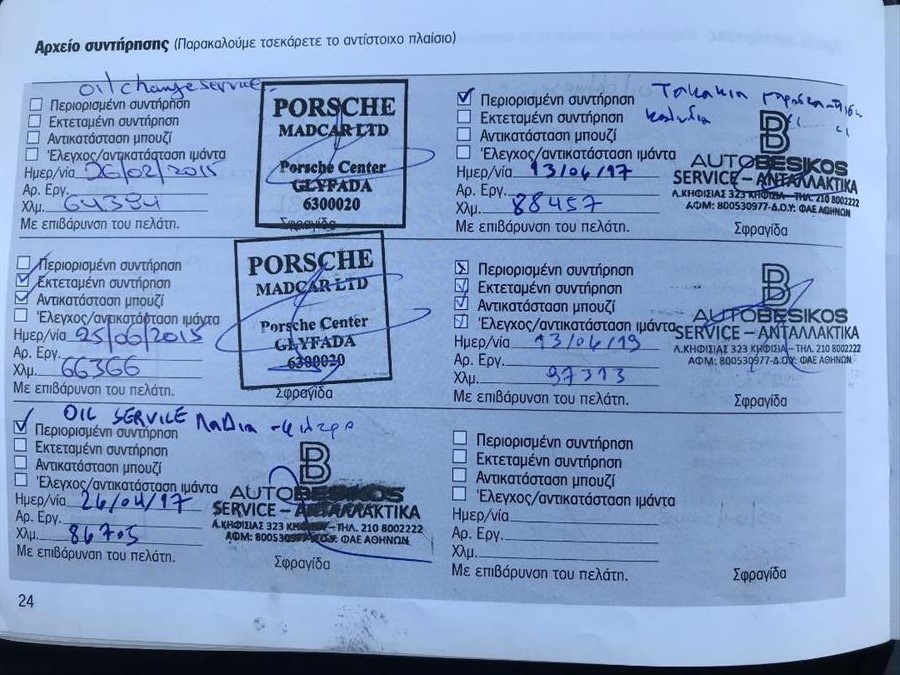 Αρχείο συντήρησης (Παρακαλούμε τσεκάρετε το αντίστοιχο πλαίσιο)
oil change service
Περιορισμένη συντήρηση
Εκτεταμένη συντήρηση
Αντικατάσταση μπουζί
Έλεγχος/αντικατάσταση ιμάντα
Ημερ/νία 26/02/2015
Αρ. Εργ.
Χλμ. 64394
Με επιβάρυνση του πελάτη.
PORSCHE
MADCAR LTD
Porsche Center
GLYFADA
6300020
Σφραγίδα
Περιορισμένη συντήρηση
Εκτεταμένη συντήρηση
Αντικατάσταση μπουζί
Έλεγχος/αντικατάσταση ιμάντα
Ημερ/νία 25/06/2015
Αρ. Εργ.
Χλμ. 66366
Με επιβάρυνση του πελάτη.
PORSCHE
MADCAR LTD
Porsche Center
GLYFADA
6300020
Σφραγίδα
OIL SERVICE Λαδια - φιλτρο
Περιορισμένη συντήρηση
Εκτεταμένη συντήρηση
Αντικατάσταση μπουζί
Έλεγχος/αντικατάσταση ιμάντα
Ημερ/νία 26/04/17
Αρ. Εργ.
Χλμ. 86705
Με επιβάρυνση του πελάτη.
B
AUTOBESIKOS
SERVICE - ΑΝΤΑΛΛΑΚΤΙΚΑ
Λ.ΚΗΦΙΣΙΑΣ 323 ΚΗΦΙΣΙΑ - ΤΗΛ. 210 8002222
ΑΦΜ: 800530977-Δ.Ο.Υ: ΦΑΕ ΑΘΗΝΩΝ
Σφραγίδα
24
Τακακια
Περιορισμένη συντήρηση
Εκτεταμένη συντήρηση
Αντικατάσταση μπουζί
Έλεγχος/αντικατάσταση ιμάντα
Ημερ/νία 13/06/17
Αρ. Εργ.
Χλμ. 88457
Με επιβάρυνση του πελάτη.
B
AUTOBESIKOS
SERVICE - ΑΝΤΑΛΛΑΚΤΙΚΑ
Λ.ΚΗΦΙΣΙΑΣ 323 ΚΗΦΙΣΙΑ - ΤΗΛ. 210 8002222
ΑΦΜ: 800530977-Δ.Ο.Υ: ΦΑΕ ΑΘΗΝΩΝ
Σφραγίδα
Περιορισμένη συντήρηση
Εκτεταμένη συντήρηση
Αντικατάσταση μπουζί
Έλεγχος/αντικατάσταση ιμάντα
Ημερ/νία 13/06/19
Αρ. Εργ.
Χλμ. 97313
Με επιβάρυνση του πελάτη.
B
AUTOBESIKOS
SERVICE - ΑΝΤΑΛΛΑΚΤΙΚΑ
Λ.ΚΗΦΙΣΙΑΣ 323 ΚΗΦΙΣΙΑ - ΤΗΛ. 210 8002222
ΑΦΜ: 800530977-Δ.Ο.Υ: ΦΑΕ ΑΘΗΝΩΝ
Σφραγίδα
Περιορισμένη συντήρηση
Εκτεταμένη συντήρηση
Αντικατάσταση μπουζί
Έλεγχος/αντικατάσταση ιμάντα
Ημερ/νία
Αρ. Εργ.
Χλμ.
Με επιβάρυνση του πελάτη.
Σφραγίδα